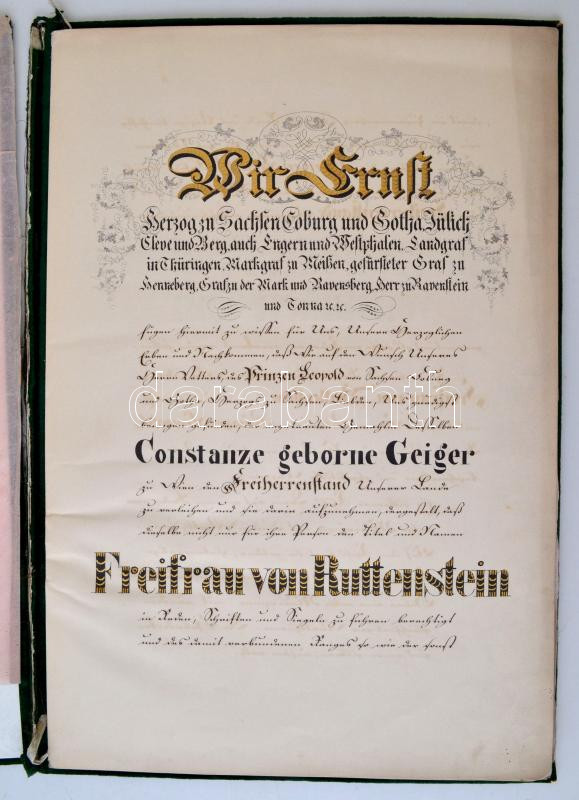 Wir Ernst
Herzog zu Sachsen Coburg und Gotha, Jülich
Cleve und Berg, auch Engern und Westphalen, Landgraf
in Thüringen, Markgraf zu Meißen, gefürsteter Graf zu
Henneberg, Graf zu der Mark und Ravensberg, Herr zu Ravenstein
und Tonna ꝛc. ꝛc.
fügen hiermit zu wissen für Uns, Unsere Herzoglichen
Erben und Nachkommen, daß Wir auf den Wunsch Unseres
Herrn Vetters, des Prinzen Leopold von Sachsen Coburg
und Gotha, Herzogs zu Sachsen, Liebden, Uns gnädigst
bewogen gefunden, der Gemahlin Desselben
Constanze geborne Geiger
zu Wien den Freiherrenstand Unserer Lande
zu verleihen und sie darein aufzunehmen, dergestalt, daß
dieselbe nicht nur für ihre Person den Titel und Namen
Freifrau von Ruttenstein
in Reden, Schriften und Siegeln zu führen berechtigt
und des damit verbundenen Ranges so wie der sonst
darabanth